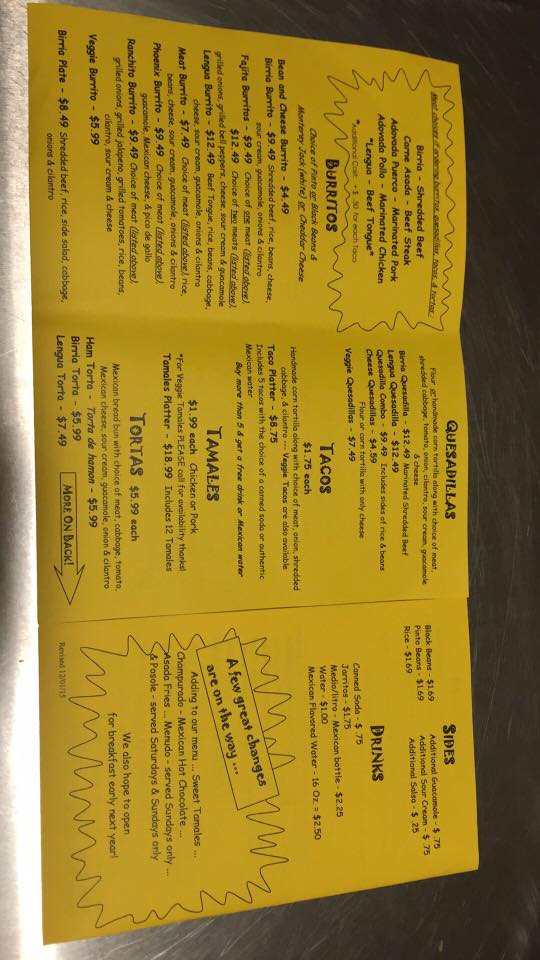 Meat choices if ordering burritos, quesadillas, tacos, & tortas:
Birria - Shredded Beef
Carne Asada - Beef Steak
Adovada Puerco - Marinated Pork
Adovada Pollo - Marinated Chicken
*Lengua - Beef Tongue*
*Additional Cost - $ .50 for each Taco
BURRITOS
Choice of Pinto or Black Beans &
Monterey Jack (white) or Cheddar Cheese
Bean and Cheese Burrito - $4.49
Birria Burrito - $9.49 Shredded beef, rice, beans, cheese,
sour cream, guacamole, onions & cilantro
Fajita Burritos - $9.49 Choice of one meat (listed above),
$12.49 Choice of two meats (listed above),
grilled onions, grilled bell peppers, cheese, sour cream & guacamole
Lengua Burrito - $12.49 Beef Tongue, rice, beans, cabbage,
cheese, sour cream, guacamole, onions & cilantro
Meat Burrito - $7.49 Choice of meat (listed above), rice,
beans, cheese, sour cream, guacamole, onions & cilantro
Phoenix Burrito - $9.49 Choice of meat (listed above),
guacamole, Mexican cheese, & pico de gallo
Ranchito Burrito - $9.49 Choice of meat (listed above),
grilled onions, grilled jalapeno, grilled tomatoes, rice, beans,
cilantro, sour cream & cheese
Veggie Burrito - $5.99
Birria Plate - $8.49 Shredded beef, rice, side salad, cabbage,
onions & cilantro
QUESADILLAS
Flour or handmade corn tortilla along with choice of meat,
shredded cabbage, tomato, onion, cilantro, sour cream, guacamole
& cheese
Birria Quesadilla - $12.49 Marinated Shredded Beef
Lengua Quesadilla - $12.49
Quesadilla Combo - $9.49 Includes sides of rice & beans
Cheese Quesadillas - $4.59
Flour or corn tortilla with only cheese
Veggie Quesadillas - $7.49
TACOS
$1.75 each
Handmade corn tortilla along with choice of meat, onion, shredded
cabbage, & cilantro --- Veggie Tacos are also available
Taco Platter - $8.75
Includes 5 tacos with the choice of a canned soda or authentic
Mexican water
Buy more than 5 & get a free drink or Mexican water
TAMALES
$1.99 each Chicken or Pork
*For Veggie Tamales PLEASE call for availability thanks!
Tamales Platter - $18.99 Includes 12 Tamales
TORTAS $5.99 each
Mexican bread bun with choice of meat, cabbage, tomato,
Mexican cheese, sour cream, guacamole, onion & cilantro
Ham Torta - Torta de hamon - $5.99
Birria Torta - $5.99
Lengua Torta - $7.49
MORE ON BACK!
SIDES
Additional Guacamole - $ .75
Additional Sour Cream - $ .75
Additional Salsa - $ .25
Black Beans - $1.69
Pinto Beans - $1.69
Rice - $1.69
DRINKS
Canned Soda - $ .75
Jarritos - $1.75
Medio/litro - Mexican bottle - $2.25
Water - $1.00
Mexican Flavored Water - 16 Oz. = $2.50
A few great changes
are on the way...
Adding to our menu ... Sweet Tamales ...
Champurado - Mexican Hot Chocolate ...
Asada Fries ... Menudo - served Sundays only ...
& Posole - served Saturdays & Sundays only
We also hope to open
for breakfast early next year!
Revised 12/01/15